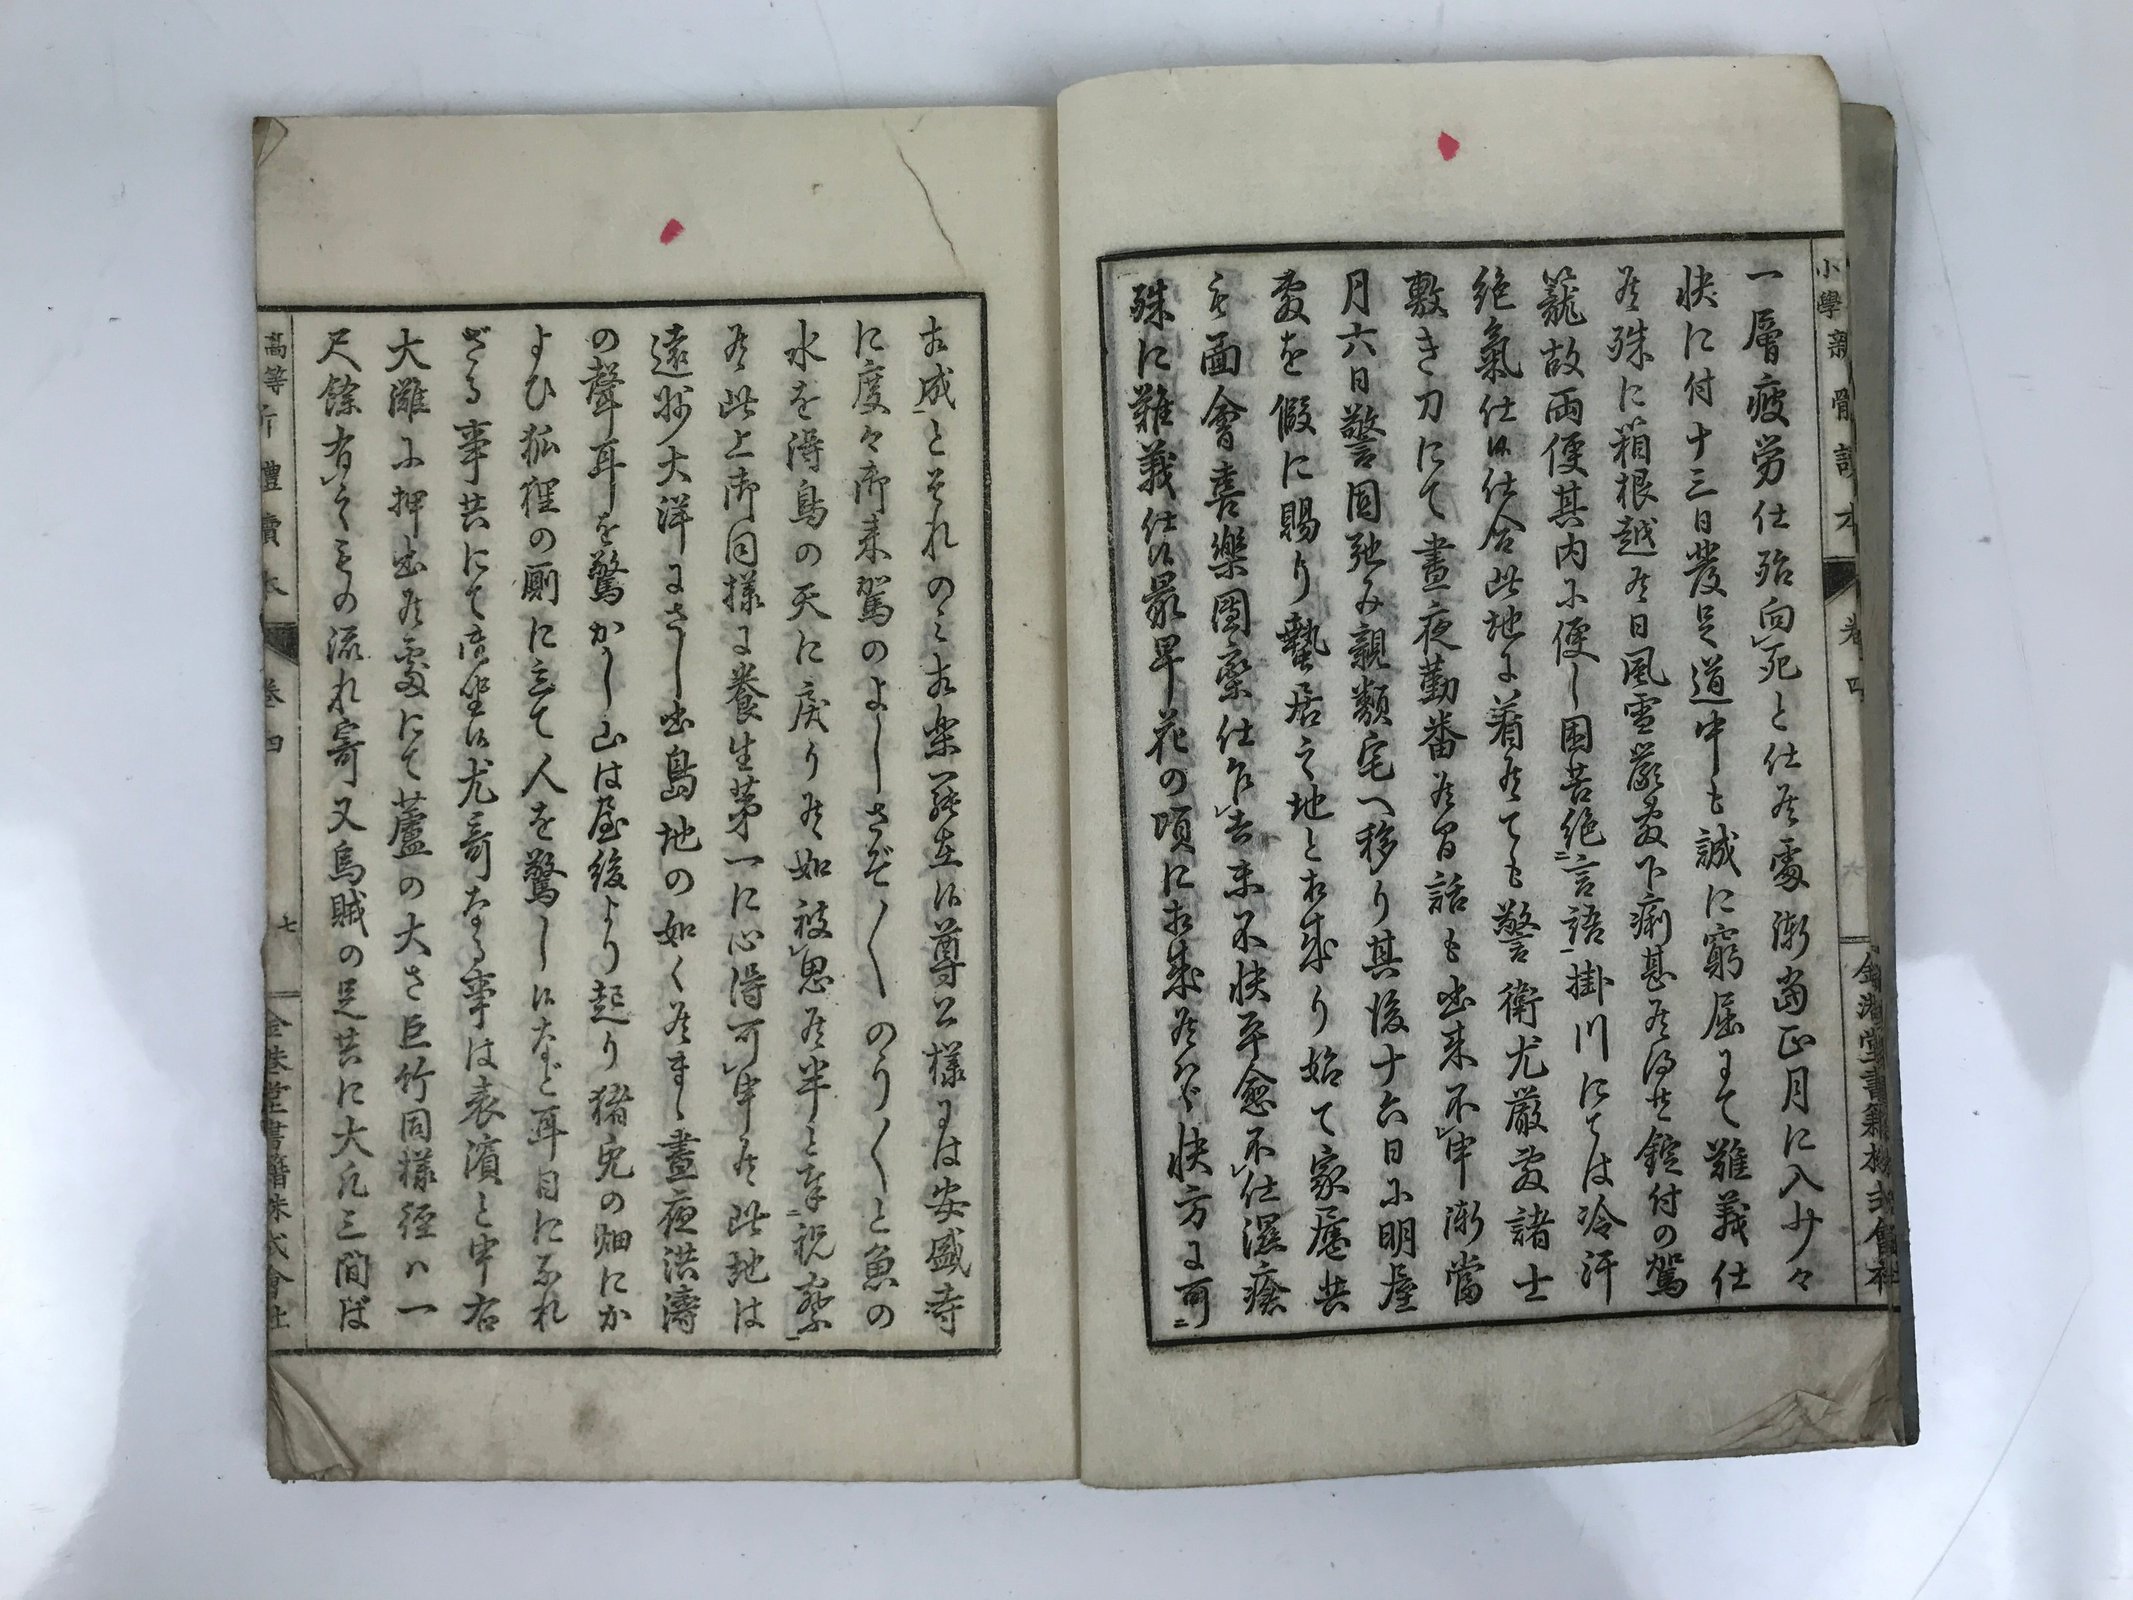 一層疲労仕殆向死と仕候處漸當正月に入少々
快に付十三日發足道中も誠に窮屈にて難義仕
候殊に箱根越候日風雪嚴敷下痢甚候得共錠付の駕
籠故両便其内に便し困苦絶言語掛川にては冷汗
絶氣仕候仕合此地に着候ても警衛尤嚴敷諸士
敷き刀にて晝夜勤番候間話も出来不申漸當
月六日警固弛み親類宅へ移り其後十六日に明屋
敷を假に賜り蟄居之地と相成り始て家屬共
も面會喜樂團欒仕乍去未不快平愈不仕濕瘡
殊に難義仕候最早花の頃に相成候へば快方に可
相成とそれのみ相楽罷在候尊公様には安盛寺
に度々御来駕のよしさぞ〳〵のう〳〵と魚の
水を得鳥の天に戻り候如被思候半と奉祝察
候此上御同様に養生第一に心得可申候此地は
遠州大洋にさし出島地の如く候まゝ晝夜洪濤
の聲耳を驚かし山は屋後より起り猪兎の畑にか
よひ狐狸の厠に立て人を驚し候など耳目になれ
ざる事共にて御坐候尤奇なる事は表濱と申右
大灘に押出候處にて蘆の大さ巨竹同様徑ハ一
尺餘有之もの流れ寄又烏賊の足共に大凡三間ば
小學新體讀本
卷四
六
金港堂書籍株式會社
高等新體讀本
卷四
七
金港堂書籍株式會社